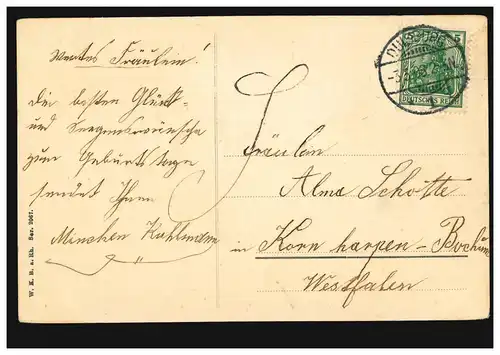 Wertes Fräulein!
Die besten Glück-
und Segenswünsche
zum Geburtstage
sendet Ihnen
Minchen Kuhlmann
W. K. B. a. Rh. Ser. 2067.
DUISBURG
5
DEUTSCHES REICH
Fräulein
Alma Schotte
in Korn harpen-Bochum
Westfalen